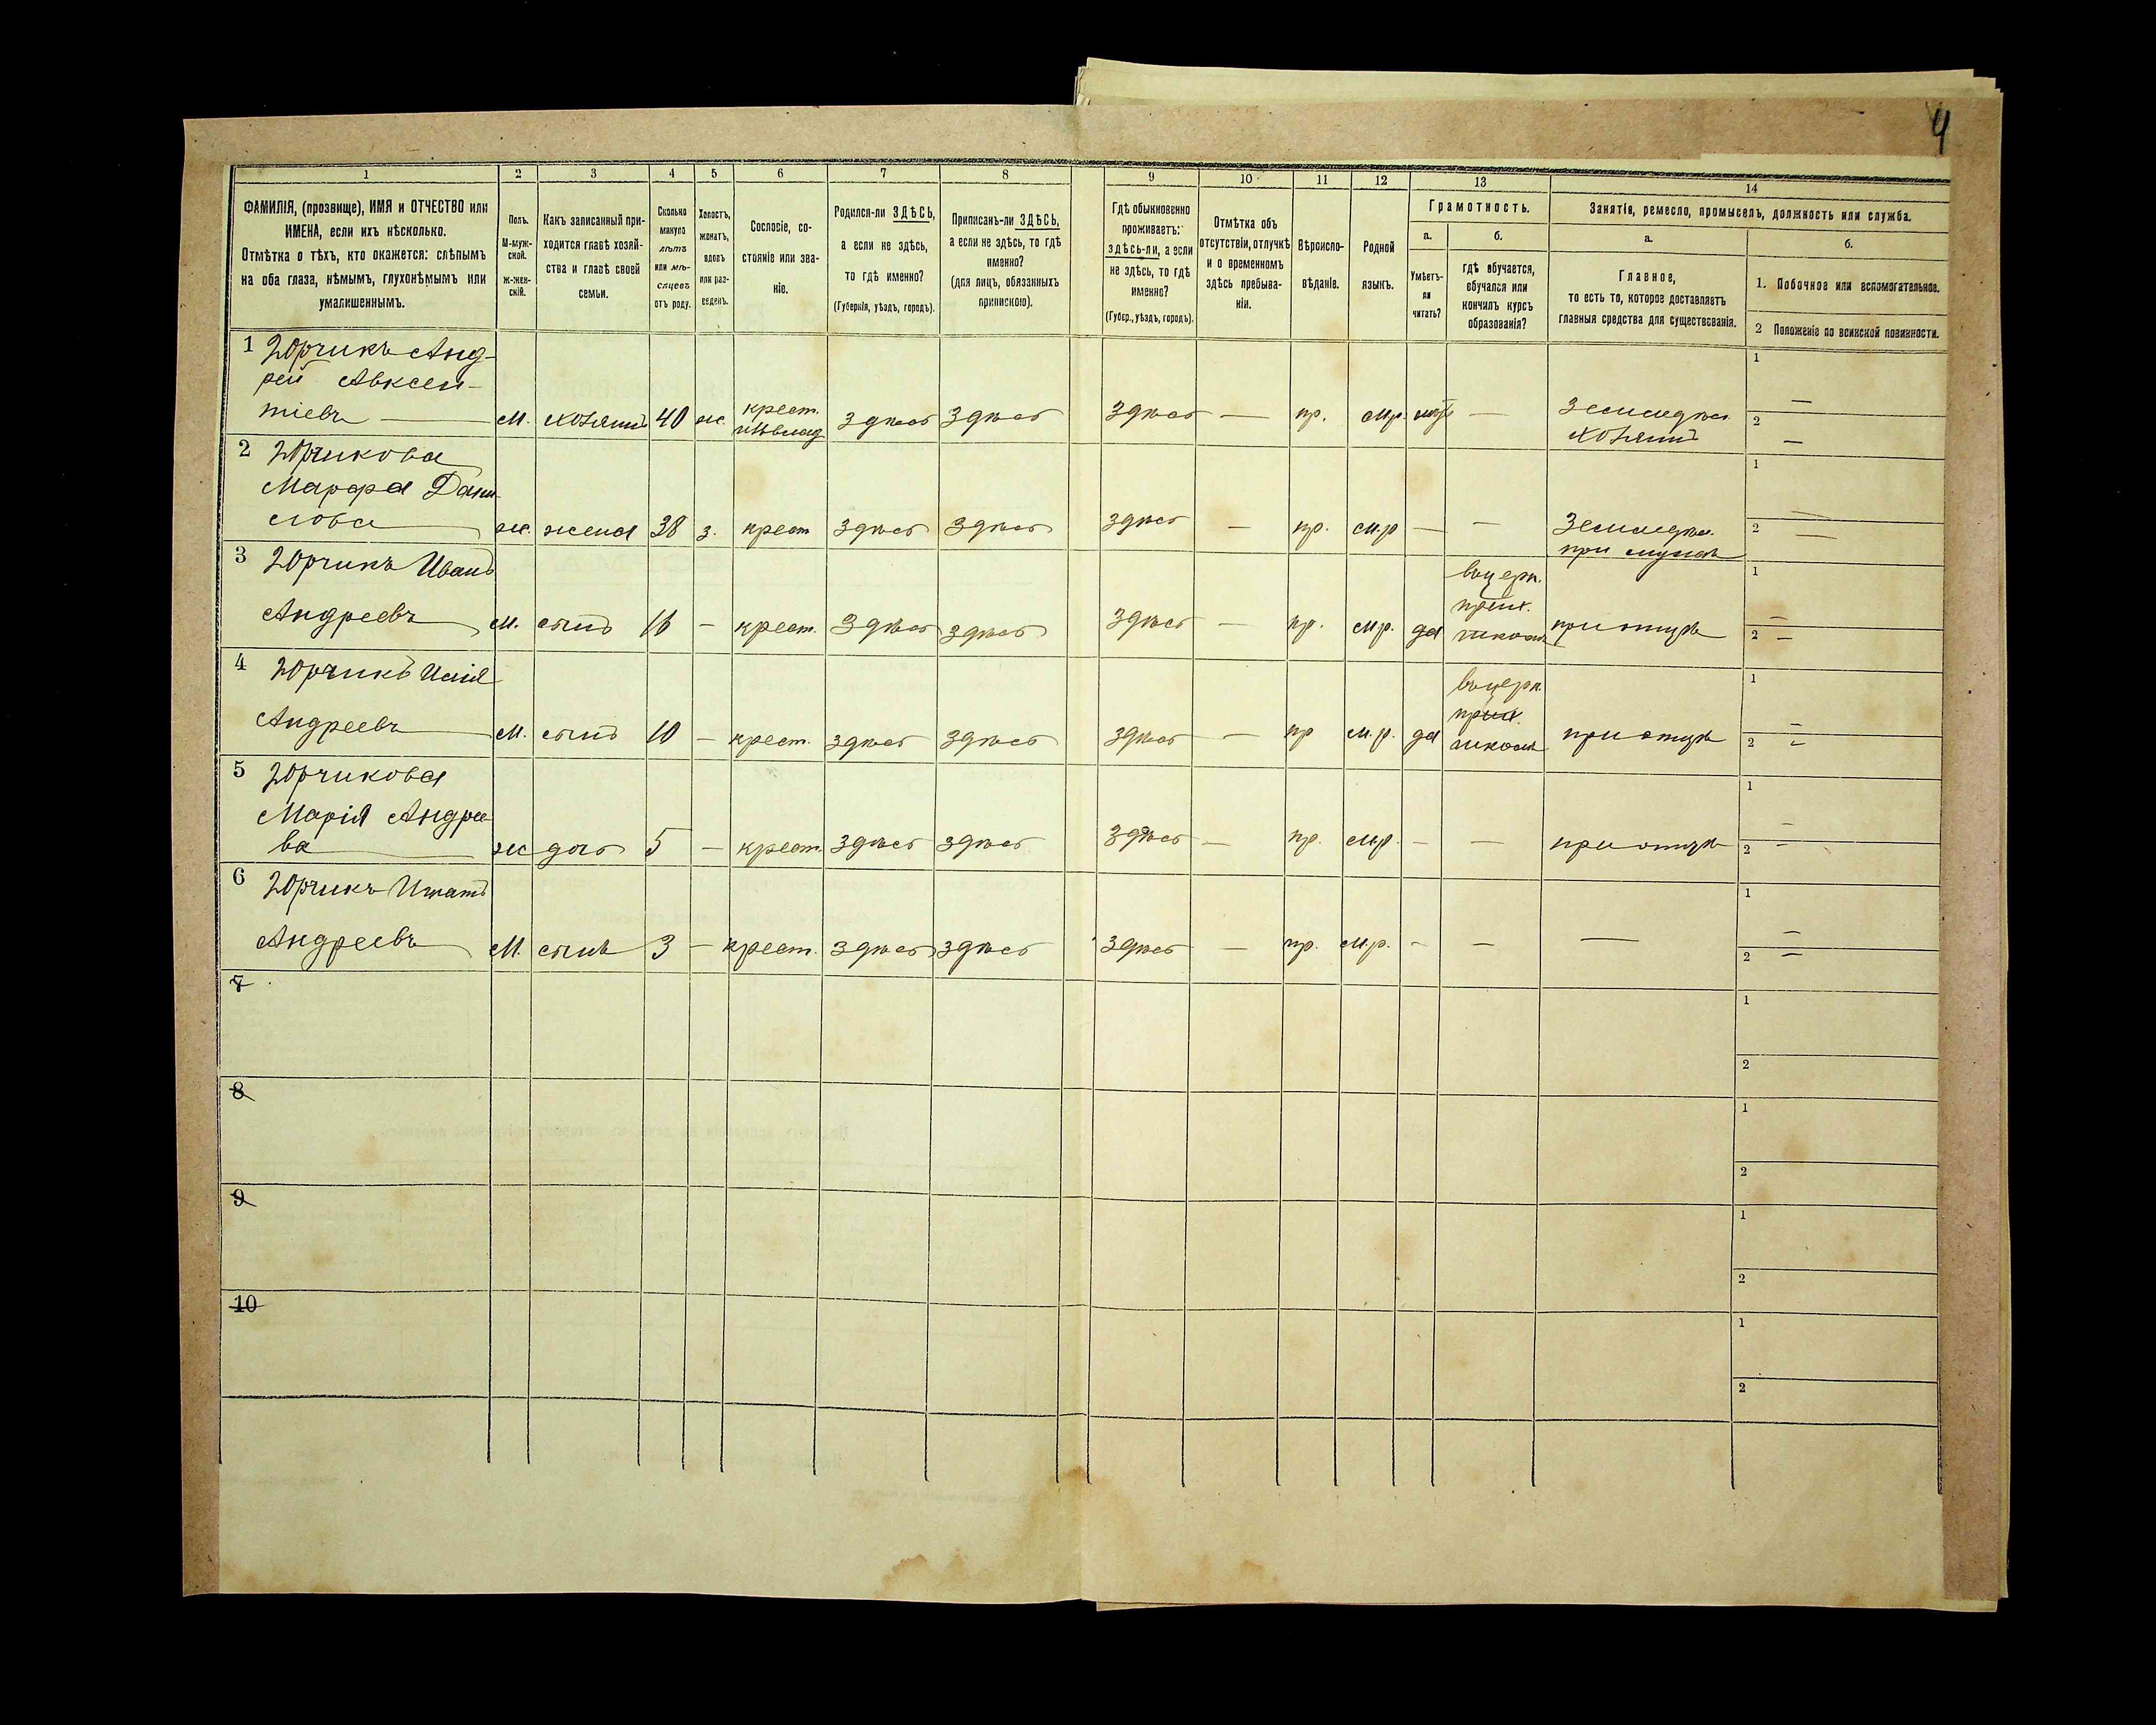 4
1 2 3 4 5 6 7 8 9 10 11 12 13 14
ФАМИЛІЯ, (прозвище), ИМЯ и ОТЧЕСТВО или
ИМЕНА, если ихъ нѣсколько.
Отмѣтка о тѣхъ, кто окажется: слѣпымъ
на оба глаза, нѣмымъ, глухонѣмымъ или
умалишеннымъ.
Полъ.
М-муж-
ской.
Ж-жен-
скій.
Какъ записанный при-
ходится главѣ хозяй-
ства и главѣ своей
семьи.
Сколько
минуло
лѣтъ
или мѣ-
сяцевъ
отъ роду.
Холостъ,
женатъ,
вдовъ
или раз-
веденъ.
Сословіе, со-
стояніе или зва-
ніе.
Родился-ли ЗДѢСЬ,
а если не здѣсь,
то гдѣ именно?
(Губернія, уѣздъ, городъ).
Приписанъ-ли ЗДѢСЬ,
а если не здѣсь, то гдѣ
именно?
(для лицъ, обязанныхъ
припискою).
Гдѣ обыкновенно
проживаетъ:
здѣсь-ли, а если
не здѣсь, то гдѣ
именно?
(Губер., уѣздъ, городъ).
Отмѣтка объ
отсутствіи, отлучкѣ
и о временномъ
здѣсь пребыва-
ніи.
Вѣроиспо-
вѣданіе.
Родной
языкъ.
Грамотность.
а.
Умѣетъ-
ли
читать?
б.
гдѣ обучается,
обучался или
кончилъ курсъ
образованія?
Занятія, ремесло, промыселъ, должность или служба.
а.
Главное,
то есть то, которое доставляетъ
главныя средства для существованія.
б.
1. Побочное или вспомогательное.
2 Положеніе по воинской повинности.
1 Юрчикъ Анд-
рей Авксен-
тіевъ — М. хозяинъ 40 ж. крест. здѣсь здѣсь здѣсь — пр. м.р. — земледѣл.
хозяинъ
1 —
2 —
2 Юрчикова
Марфа Дани
лова ж. жена 38 з. крест здѣсь здѣсь здѣсь — пр. м.р — — земледѣл.
при мужѣ
1 —
2 —
3 Юрчикъ Иванъ
Андреевъ М. сынъ 16 — крест. здѣсь здѣсь здѣсь — пр. м.р. да
въ церк.
прих.
школѣ
при отцѣ
1 —
2 —
4 Юрчикъ Илія
Андреевъ М. сынъ 10 — крест. здѣсь здѣсь здѣсь — пр м.р. да
въ церк.
прих.
школѣ
при отцѣ
1 —
2 —
5 Юрчикова
Марія Андрее
ва ж дочь 5 — крест. здѣсь здѣсь здѣсь — пр. м.р. — — при отцѣ
1 —
2 —
6 Юрчикъ Игнатъ
Андреевъ М. сынъ 3 — крест. здѣсь здѣсь здѣсь — пр. м.р. — — —
1 —
2 —
7
1
2
8
1
2
9
1
2
10
1
2